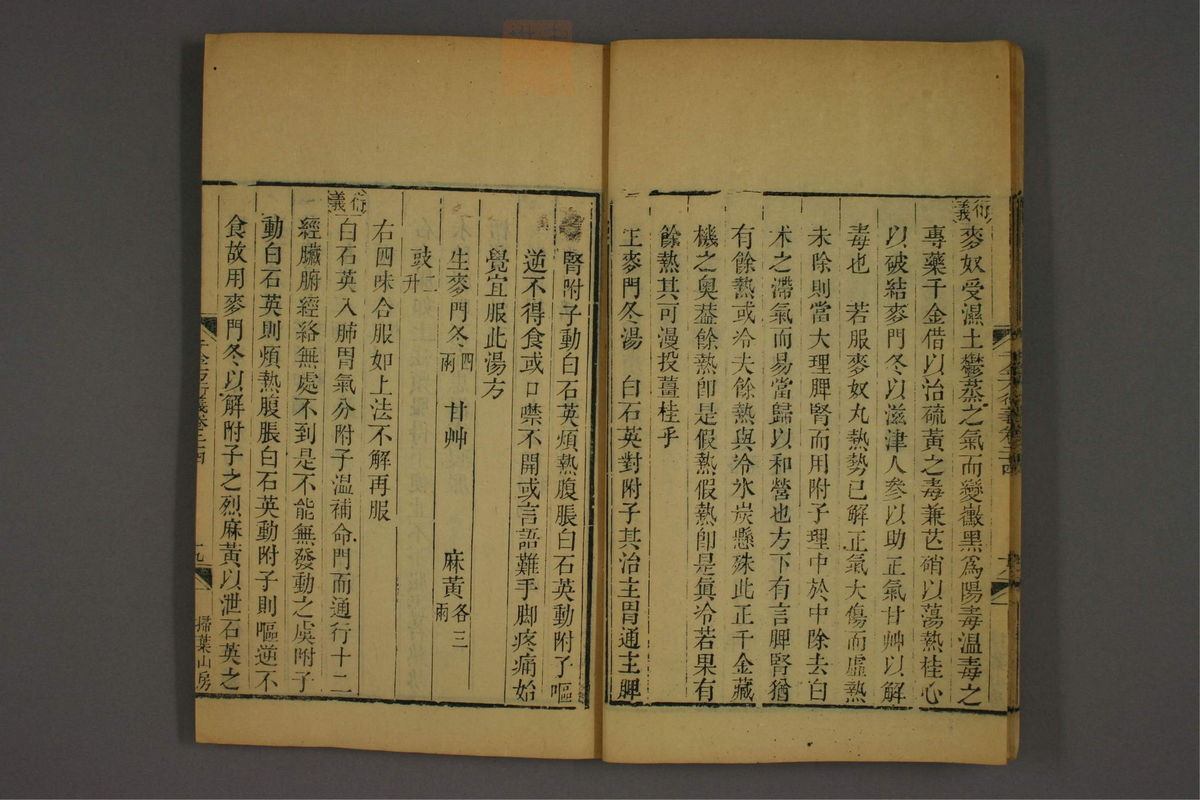 衍義
麥奴受濕土鬱蒸之氣而變黴黑爲陽毒溫毒之
專藥千金借以治硫黃之毒兼芒硝以蕩熱桂心
以破結麥門冬以滋津人參以助正氣甘艸以解
毒也　若服麥奴丸熱勢已解正氣大傷而虛熱
未除則當大理脾腎而用附子理中於中除去白
朮之滯氣而易當歸以和營也方下有言脾腎猶
有餘熱或冷夫餘熱與冷氷炭懸殊此正千金藏
機之奧葢餘熱卽是假熱假熱卽是眞冷若果有
餘熱其可漫投薑桂乎
生麥門冬湯　白石英對附子其治主胃通主脾
千金方衍義卷二十四
腎附子動白石英煩熱腹脹白石英動附子嘔
逆不得食或口噤不開或言語難手脚疼痛始
覺宜服此湯方
生麥門冬四兩　甘艸　麻黃各三兩
豉二升
右四味合服如上法不解再服
衍義
白石英入肺胃氣分附子溫補命門而通行十二
經臟腑經絡無處不到是不能無發動之虞附子
動白石英則煩熱腹脹白石英動附子則嘔逆不
食故用麥門冬以解附子之烈麻黃以泄石英之
千金方衍義卷二十四
九
掃葉山房